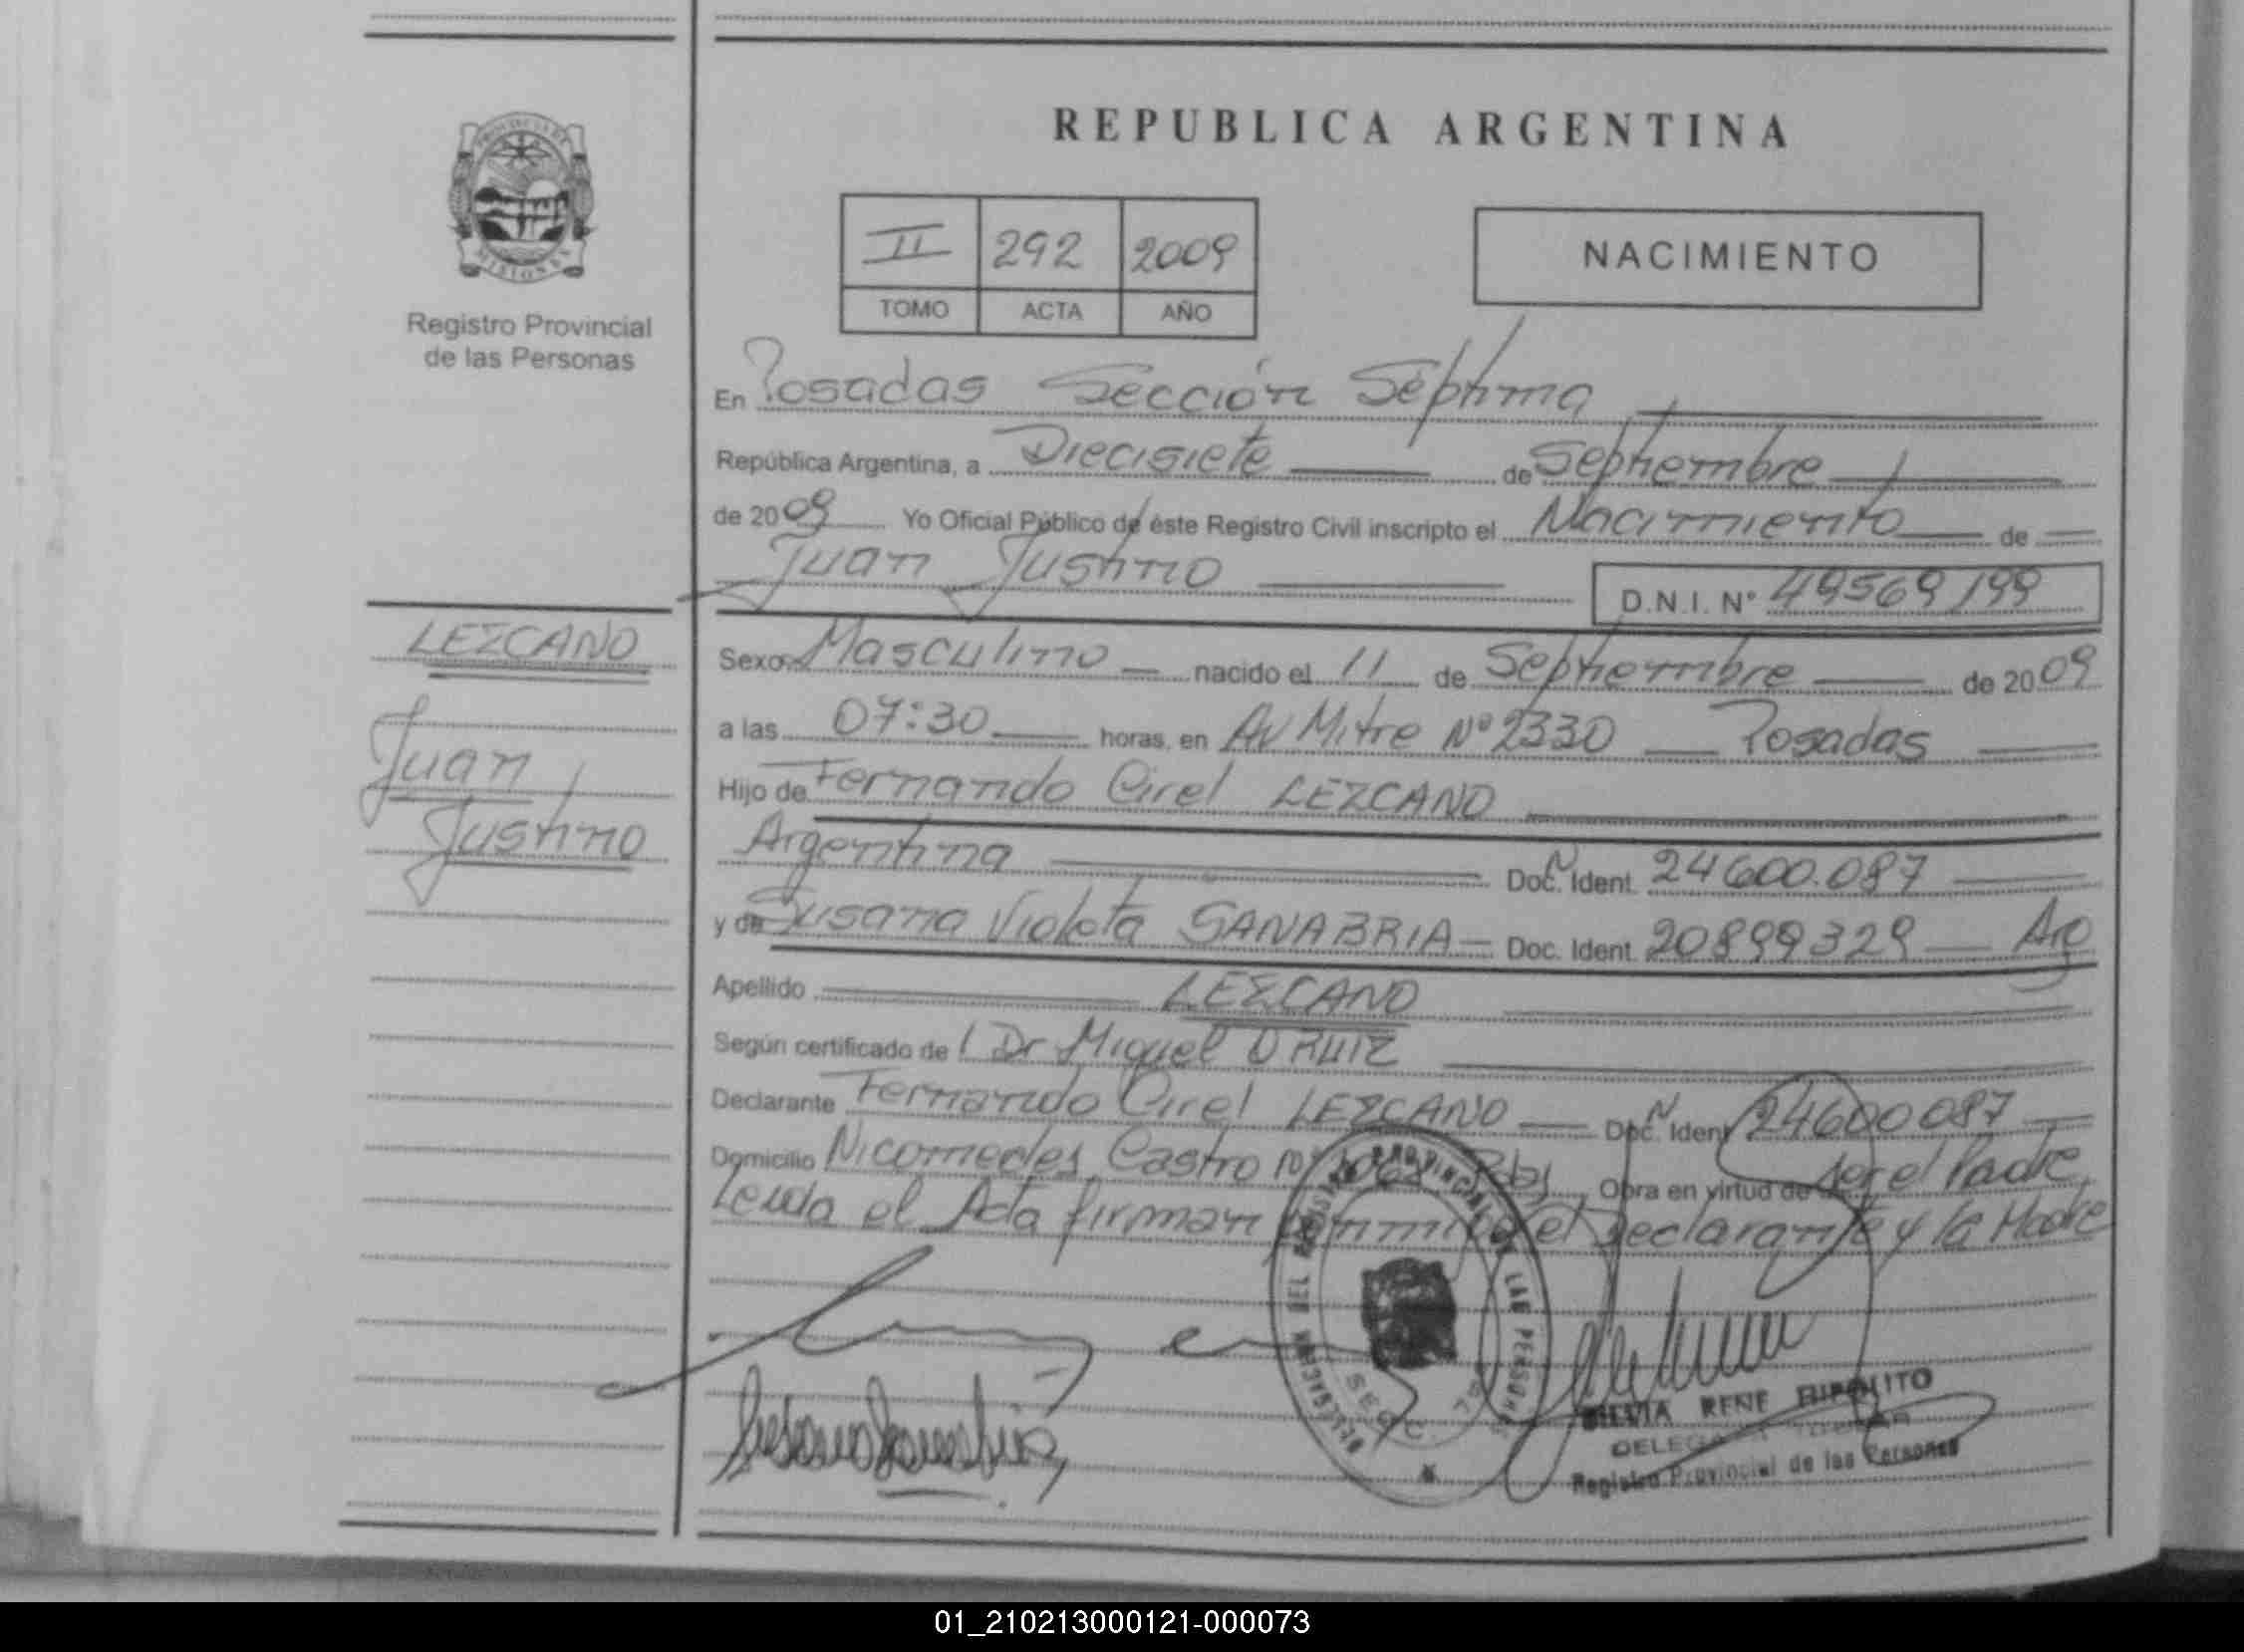 REPUBLICA ARGENTINA
PROVINCIA DE
MISIONES
Registro Provincial
de las Personas
II 292 2009
TOMO ACTA AÑO
NACIMIENTO
En Posadas Sección Séptima
República Argentina, a Diecisiete de Septiembre
de 2009 Yo Oficial Público de éste Registro Civil inscripto el Nacimiento de
Juan Justino
D.N.I. N° 49569199
LEZCANO
Juan
Justino
Sexo Masculino nacido el 11 de Septiembre de 2009
a las 07:30 horas, en Av Mitre Nº 2330 Posadas
Hijo de Fernando Cirel LEZCANO
Argentina Doc. Ident. 24600.087
y de Susana Violeta SANABRIA Doc. Ident. 20899329 Arg
Apellido LEZCANO
Según certificado de Dr Miguel O RUIZ
Declarante Fernando Cirel LEZCANO Doc. Ident 24600087
Domicilio Nicomedes Castro Pdas Obra en virtud de ser el Padre
Leida el Acta firman el Declarante y la Madre
SECC. 7ª
SILVIA RENE HIPOLITO
DELEGADA TITULAR
Registro Provincial de las Personas
01_210213000121-000073